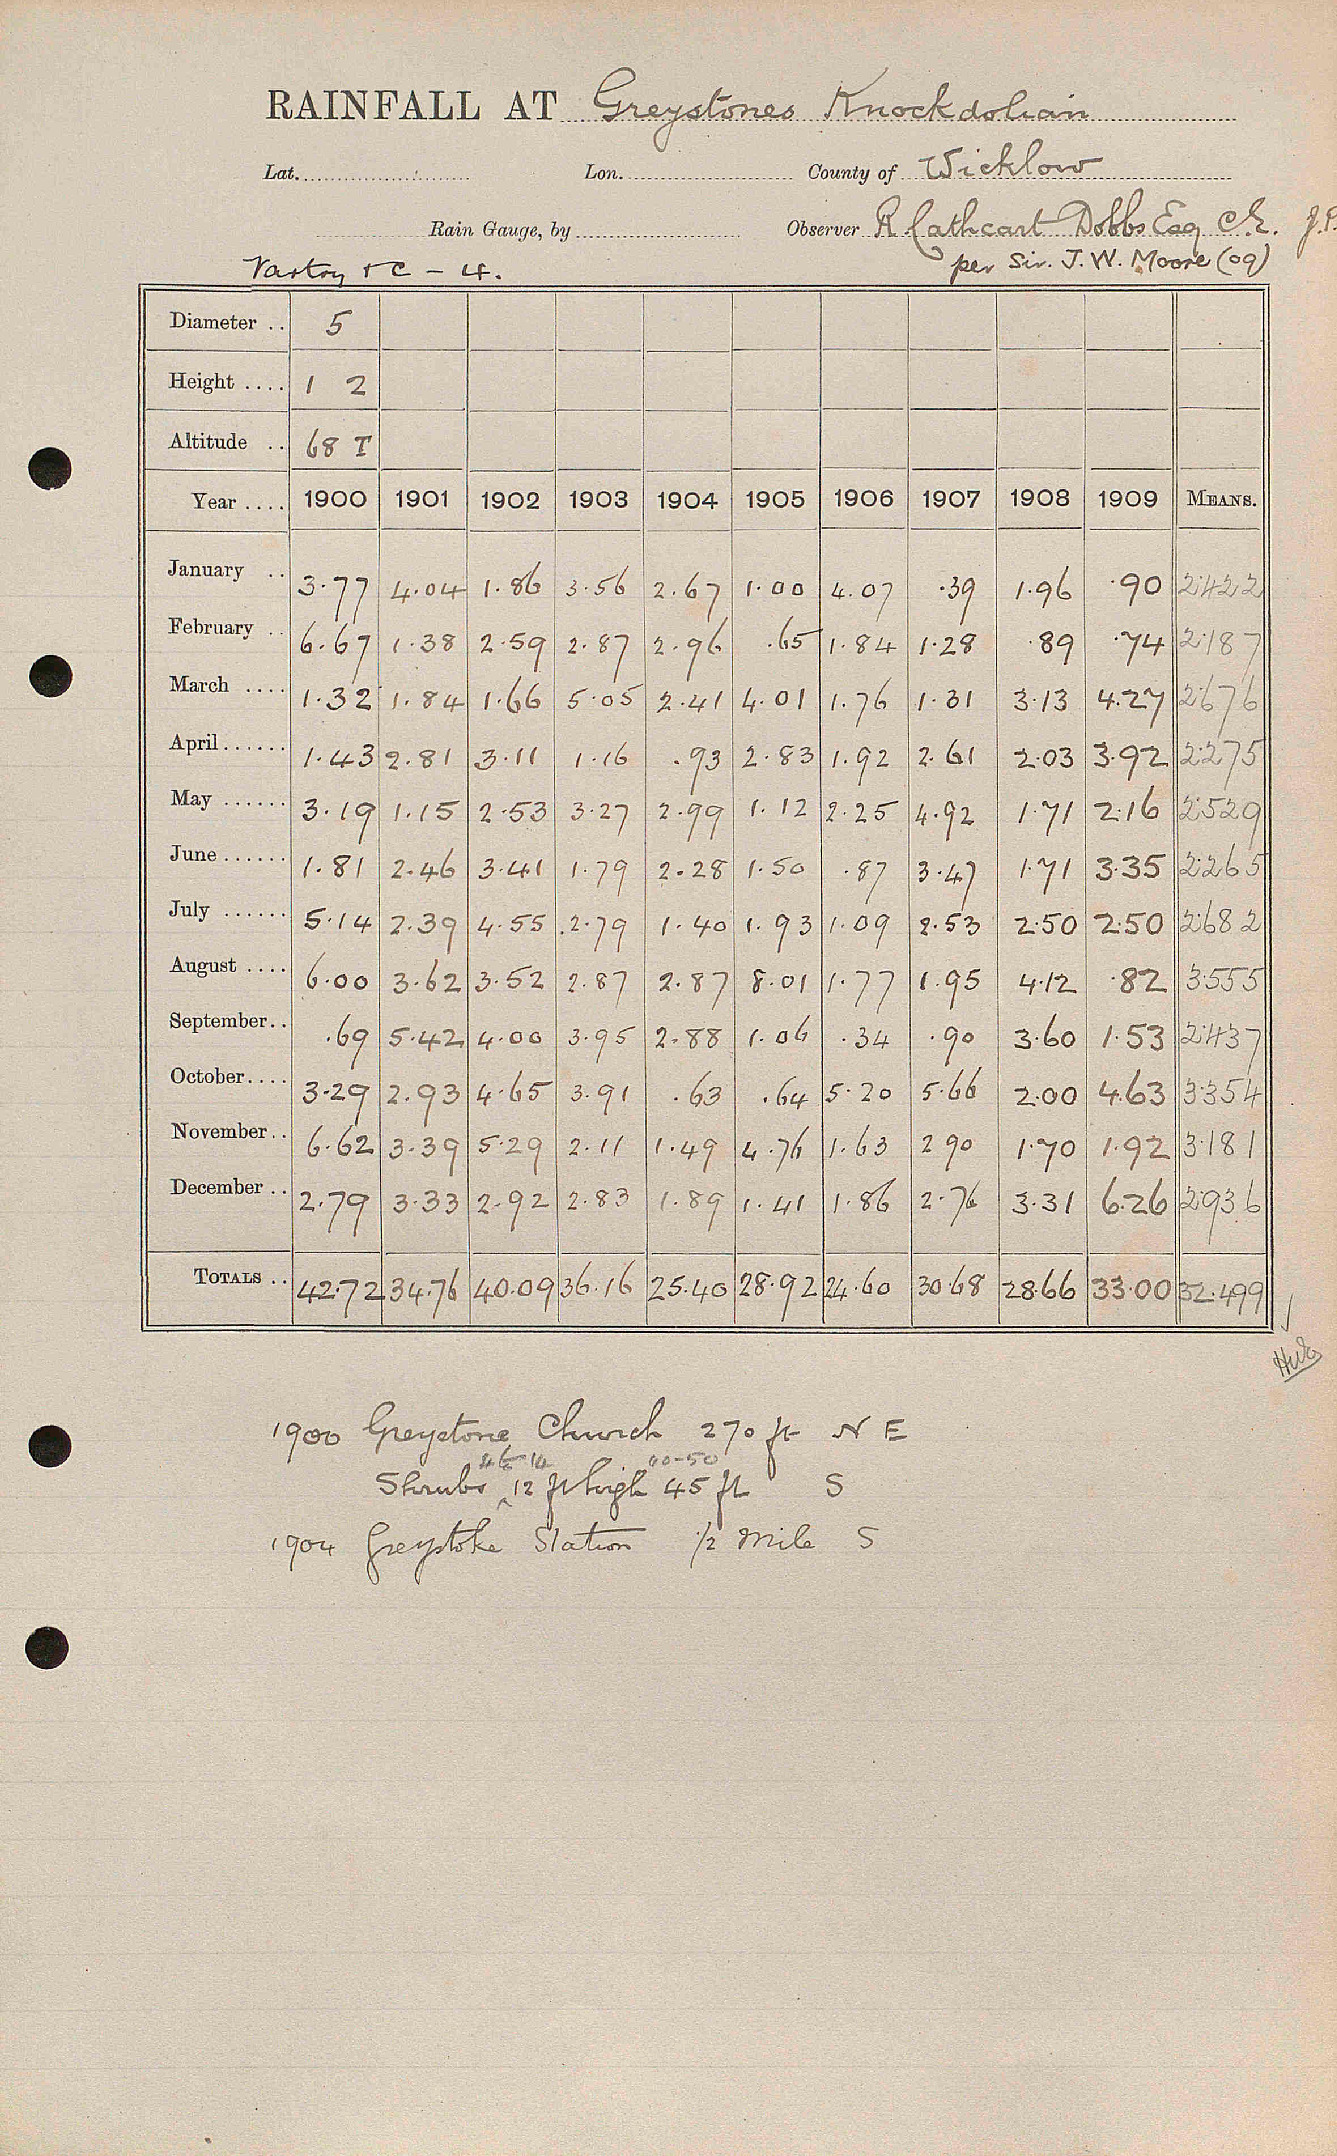 RAINFALL AT Greystones Knockdolian
Lat. Lon. County of Wicklow
Rain Gauge, by Observer R Cathcart Dobbs Esq C.E. J.P.
Vartry &c - 4. per Sir. J. W. Moore (09)
Diameter .. 5
Height .... 1 2
Altitude .. 68 T
Year .... 1900 1901 1902 1903 1904 1905 1906 1907 1908 1909 MEANS.
January .. 3.77 4.04 1.86 3.56 2.67 1.00 4.07 .39 1.96 .90 2.422
February .. 6.67 1.38 2.59 2.87 2.96 .65 1.84 1.28 .89 .74 2.187
March .... 1.32 1.84 1.66 5.05 2.41 4.01 1.76 1.31 3.13 4.27 2.676
April ...... 1.43 2.81 3.11 1.16 .93 2.83 1.92 2.61 2.03 3.92 2.275
May ...... 3.19 1.15 2.53 3.27 2.99 1.12 2.25 4.92 1.71 2.16 2.529
June ...... 1.81 2.46 3.41 1.79 2.28 1.50 .87 3.47 1.71 3.35 2.265
July ...... 5.14 2.39 4.55 2.79 1.40 1.93 1.09 2.53 2.50 2.50 2.682
August .... 6.00 3.62 3.52 2.87 2.87 8.01 1.77 1.95 4.12 .82 3.555
September .. .69 5.42 4.00 3.95 2.88 1.06 .34 .90 3.60 1.53 2.437
October .... 3.29 2.93 4.65 3.91 .63 .64 5.20 5.66 2.00 4.63 3.354
November .. 6.62 3.39 5.29 2.11 1.49 4.76 1.63 2 90 1.70 1.92 3.181
December .. 2.79 3.33 2.92 2.83 1.89 1.41 1.86 2.76 3.31 6.26 2.936
TOTALS .. 42.72 34.76 40.09 36.16 25.40 28.92 24.60 30.68 28.66 33.00 32.499
1900 Greystone Church 270 ft N E
40-50
Shrubs 12 ft high 45 ft S
1904 Greystoke Station 1/2 mile S